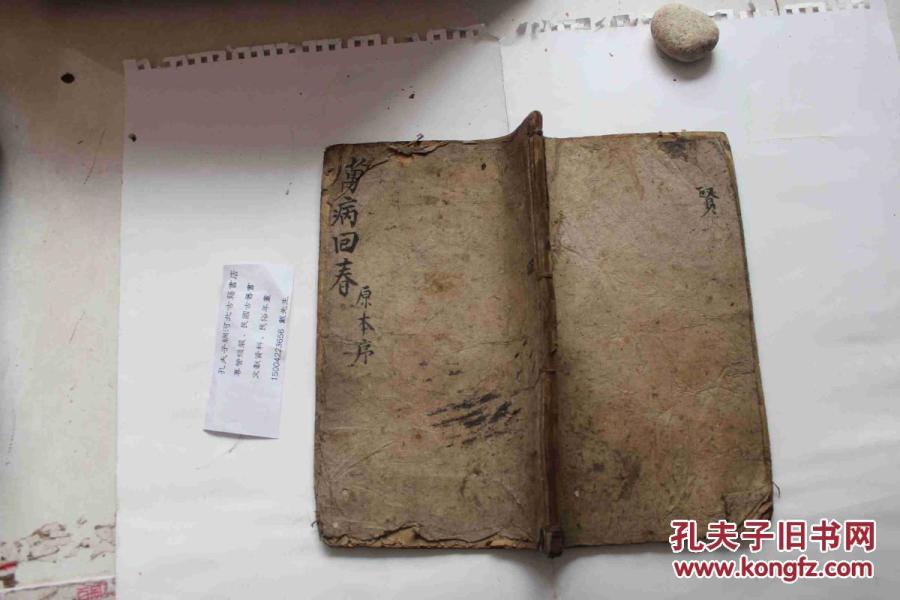 萬病回春
原本序
賢
孔夫子網河北古籍書店
專營綫裝、民國古舊書
文獻資料、民俗年畫
15004223656 戴先生
孔夫子旧书网
www.kongfz.com